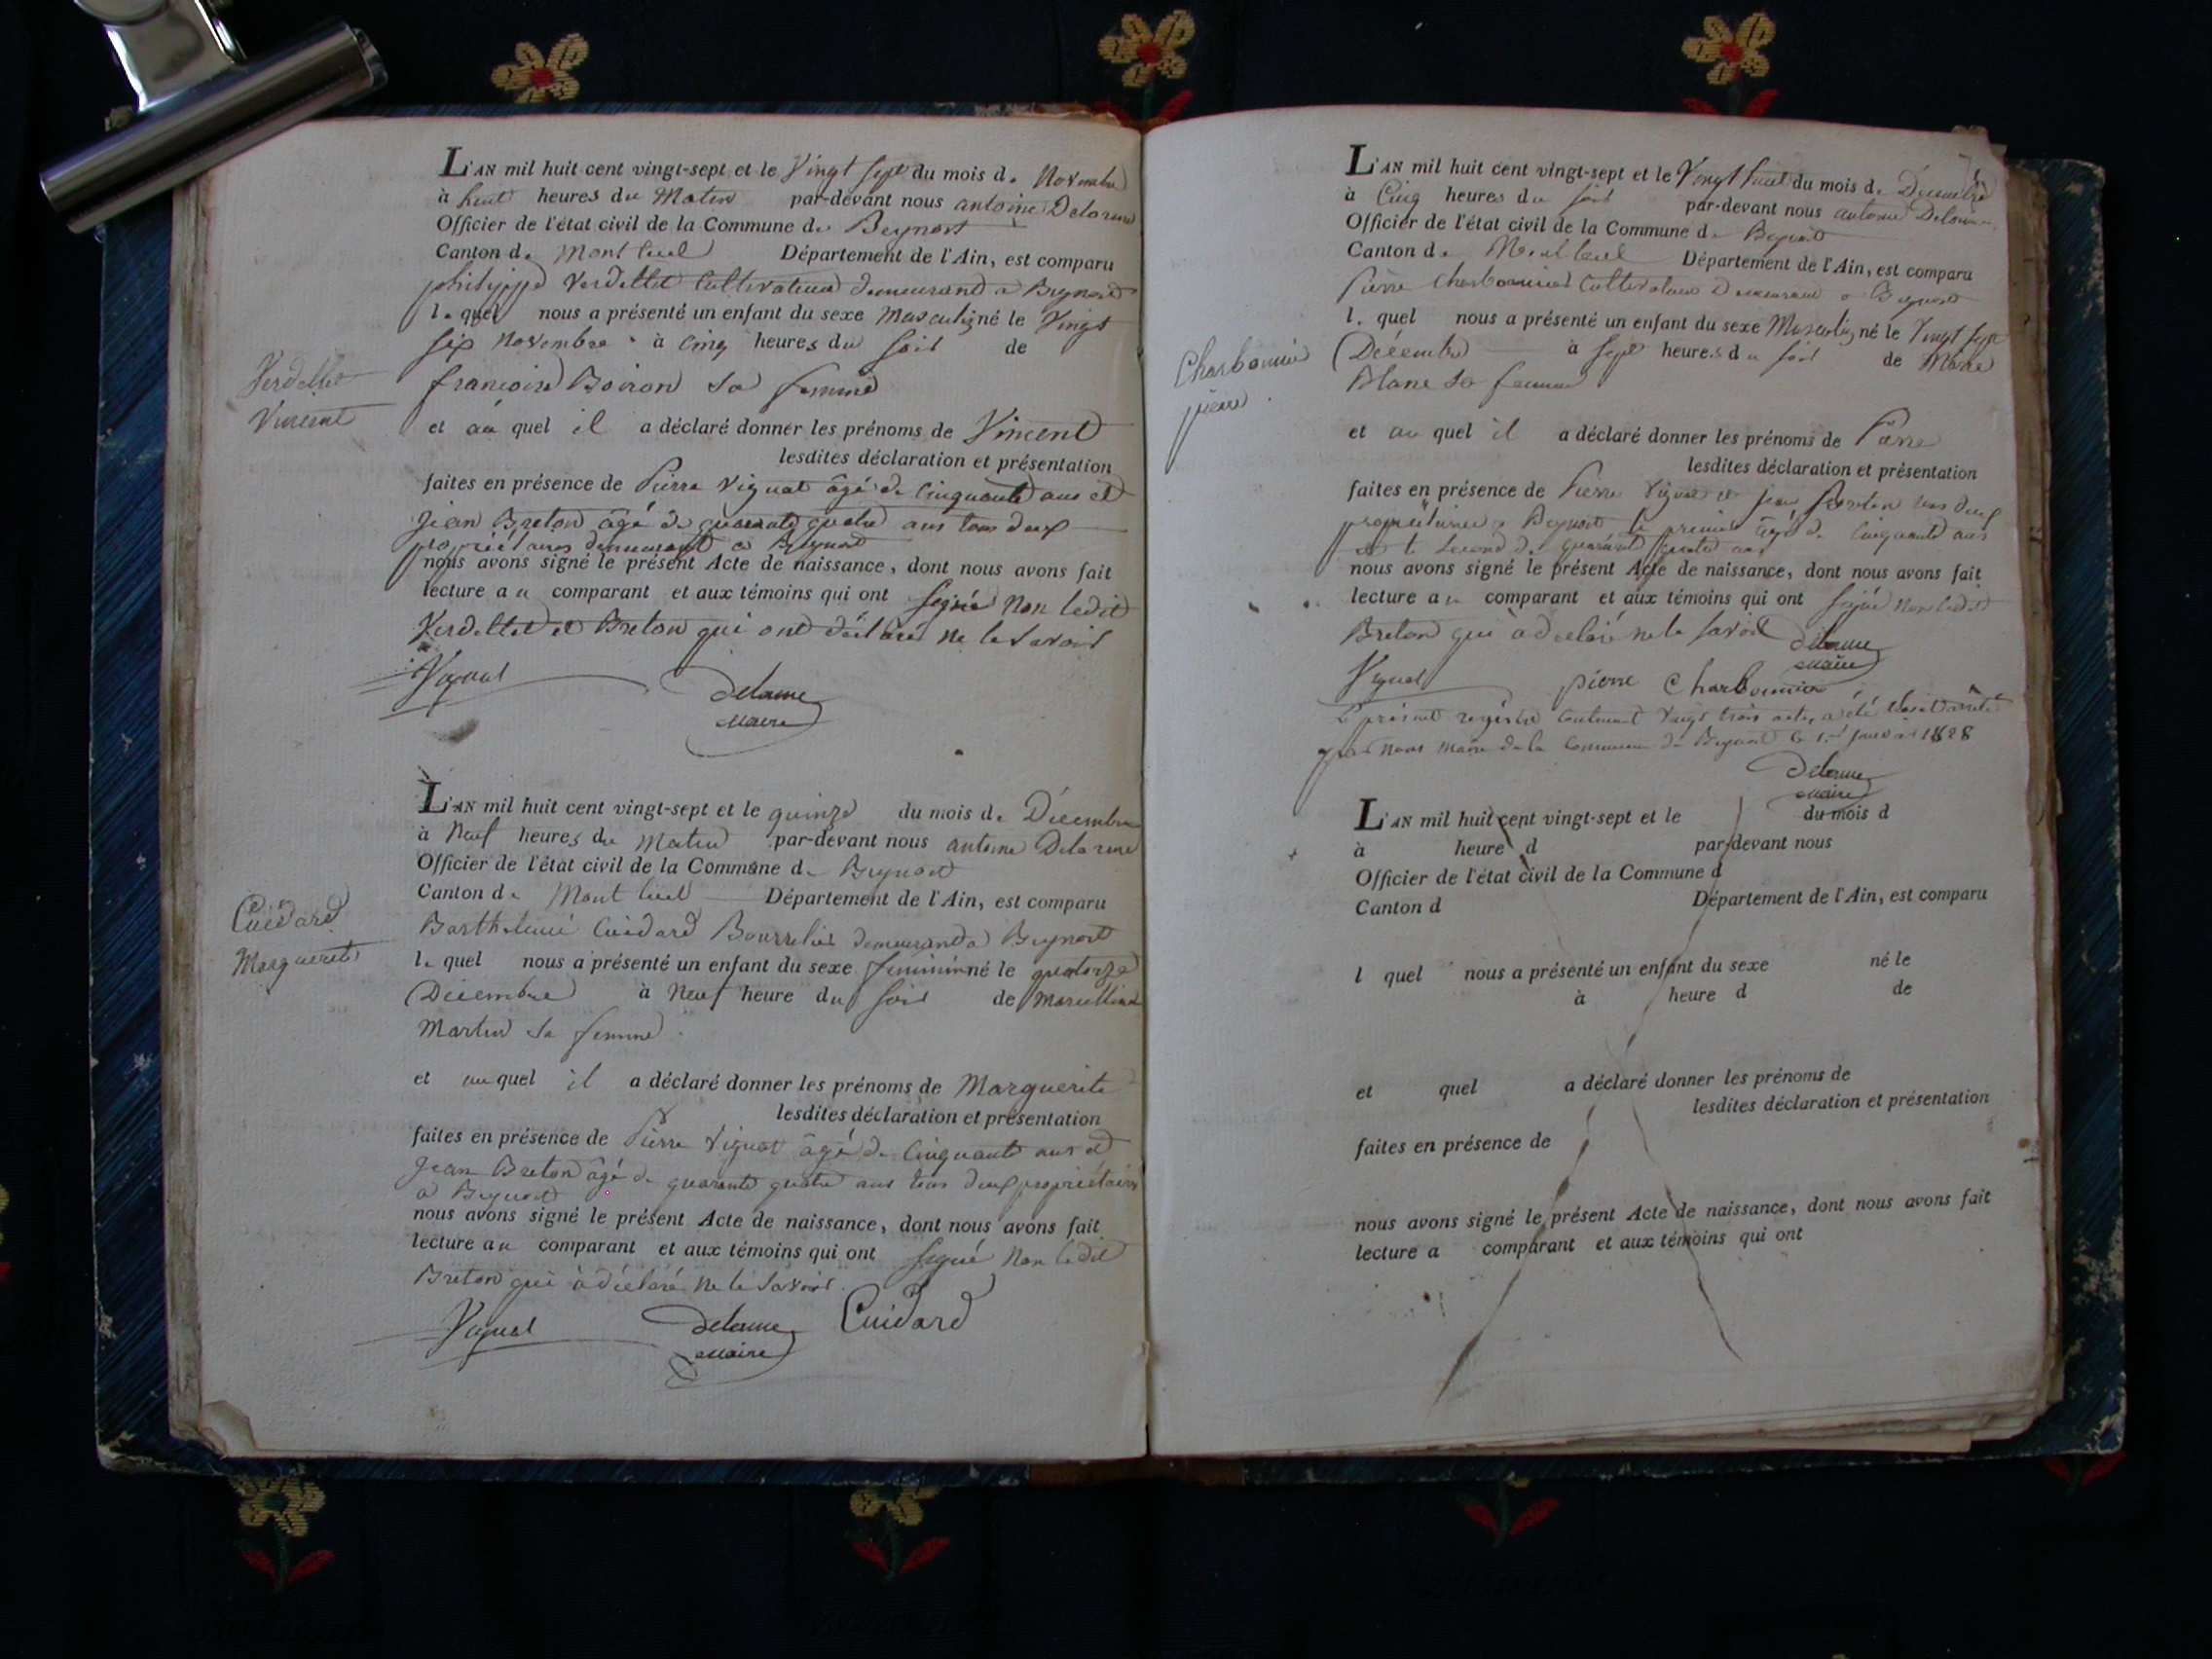 L'AN mil huit cent vingt-sept et le Vingt Sept du mois de Novembre
à huit heures du Matin par-devant nous antoine Delorme
Officier de l'état civil de la Commune de Beynost
Canton de Montluel Département de l'Ain, est comparu
philippe Verdellet Cultivateur demeurant a Beynost
le quel nous a présenté un enfant du sexe Masculin né le Vingt
Six Novembre à Cinq heures du Soir de
francoise Boiron sa femme
Verdellet
Vincent
et au quel il a déclaré donner les prénoms de Vincent
lesdites déclaration et présentation
faites en présence de Pierre Vignat âgé de Cinquante ans et
Jean Breton âgé de quarante quatre ans tous deux
propriétaires demeurant a Beynost
nous avons signé le présent Acte de naissance, dont nous avons fait
lecture au comparant et aux témoins qui ont Signé Non ledit
Verdellet et Breton qui ont déclaré ne le Savoir
Vignat Delorme
Maire
L'AN mil huit cent vingt-sept et le quinze du mois de Décembre
à Neuf heures du Matin par-devant nous antoine Delorme
Officier de l'état civil de la Commune de Beynost
Canton de Montluel Département de l'Ain, est comparu
Barthelemi Cuidard Bourrelier demeurant a Beynost
le quel nous a présenté un enfant du sexe feminin né le quatorze
Décembre à Neuf heure du Soir de Marcelline
Martin sa femme
Cuidard
Marguerite
et au quel il a déclaré donner les prénoms de Marguerite
lesdites déclaration et présentation
faites en présence de Pierre Vignat âgé de Cinquante ans et
Jean Breton âgé de quarante quatre ans tous deux propriétaires
a Beynost
nous avons signé le présent Acte de naissance, dont nous avons fait
lecture au comparant et aux témoins qui ont Signé Non ledit
Breton qui à déclaré ne le Savoir.
Vignat Delorme Cuidard
Maire
L'AN mil huit cent vingt-sept et le Vingt huit du mois de Décembre
à Cinq heures du Soir par-devant nous antoine Delorme
Officier de l'état civil de la Commune de Beynost
Canton de Montluel Département de l'Ain, est comparu
Pierre Charbonnier Cultivateur Demeurant a Beynost
le quel nous a présenté un enfant du sexe Masculin né le Vingt Sept
Décembre à Sept heures du Soir de Marie
Blanc sa femme
Charbonnier
pierre
et au quel il a déclaré donner les prénoms de Pierre
lesdites déclaration et présentation
faites en présence de Pierre Vignat et jean Breton tous deux
propriétaires a Beynost le premier âgé de Cinquante ans
et le Second de quarante quatre ans
nous avons signé le présent Acte de naissance, dont nous avons fait
lecture au comparant et aux témoins qui ont Signé Non ledit
Breton qui à déclaré ne le Savoir Delorme
Maire
Vignat pierre Charbonnier
Le présent registre Contenant Vingt trois actes a été Clos et arrêté
par Nous Maire de la Commune de Beynost le 1er janvier 1828
Delorme
Maire
L'AN mil huit cent vingt-sept et le du mois d
à heure d par-devant nous
Officier de l'état civil de la Commune d
Canton d Département de l'Ain, est comparu
l quel nous a présenté un enfant du sexe né le
à heure d de
et quel a déclaré donner les prénoms de
lesdites déclaration et présentation
faites en présence de
nous avons signé le présent Acte de naissance, dont nous avons fait
lecture a comparant et aux témoins qui ont